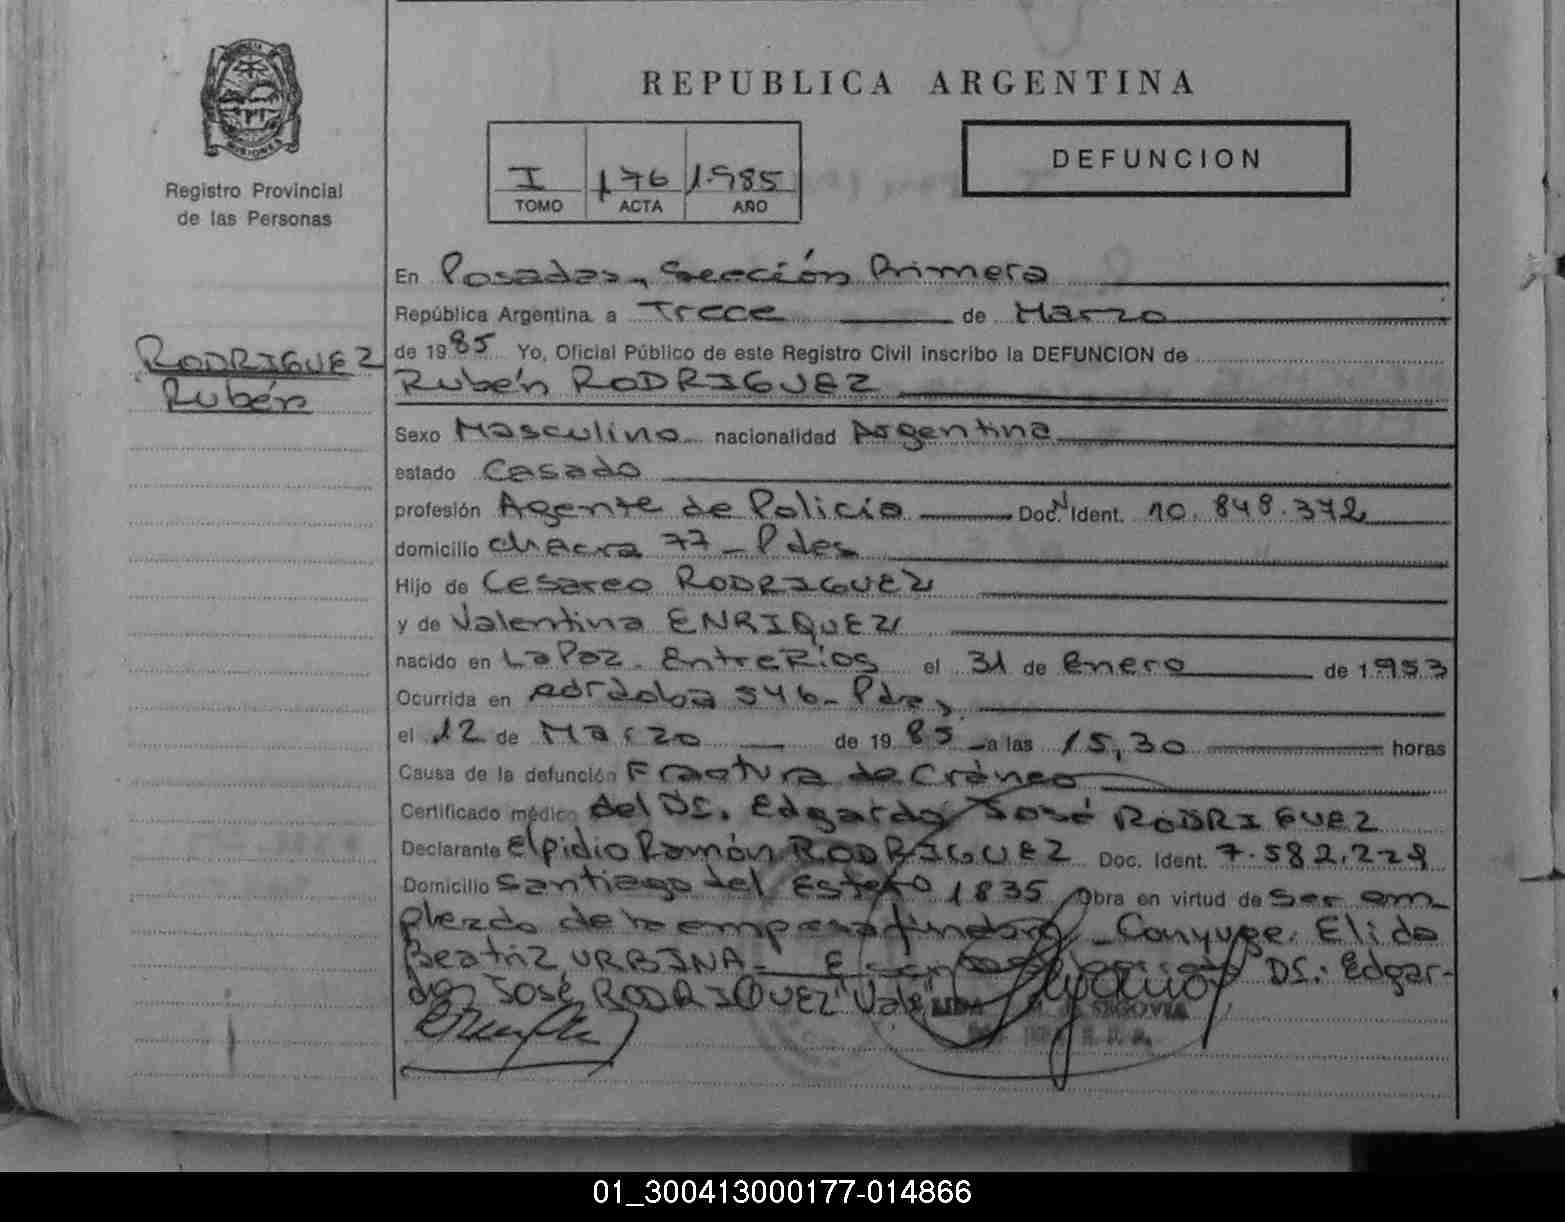 REPUBLICA ARGENTINA
MISIONES
Registro Provincial
de las Personas
I 176 1.985
TOMO ACTA AÑO
DEFUNCION
RODRIGUEZ
Rubén
En Posadas, Sección Primera
República Argentina a Trece de Marzo
de 1985 Yo, Oficial Público de este Registro Civil inscribo la DEFUNCION de
Rubén RODRIGUEZ
Sexo Masculino nacionalidad Argentina
estado Casado
profesión Agente de Policía Doc. N Ident. 10.848.372
domicilio chacra 77 - Pdas
Hijo de Cesareo RODRIGUEZ
y de Valentina ENRIQUEZ
nacido en La Paz. Entre Ríos el 31 de Enero de 1953
Ocurrida en Córdoba 546 - Pdas,
el 12 de Marzo de 1985 a las 15,30 horas
Causa de la defunción Fractura de Cráneo
Certificado médico del Dr. Edgardo José RODRIGUEZ
Declarante Elpidio Ramón RODRIGUEZ Doc. Ident. 7.582.229
Domicilio Santiago del Estero 1835 Obra en virtud de ser em-
pleado de la empresa - Conyuge: Elida
Beatriz URBINA - Dr: Edgar-
do José RODRIGUEZ "Vale"
SEGOVIA
01_300413000177-014866